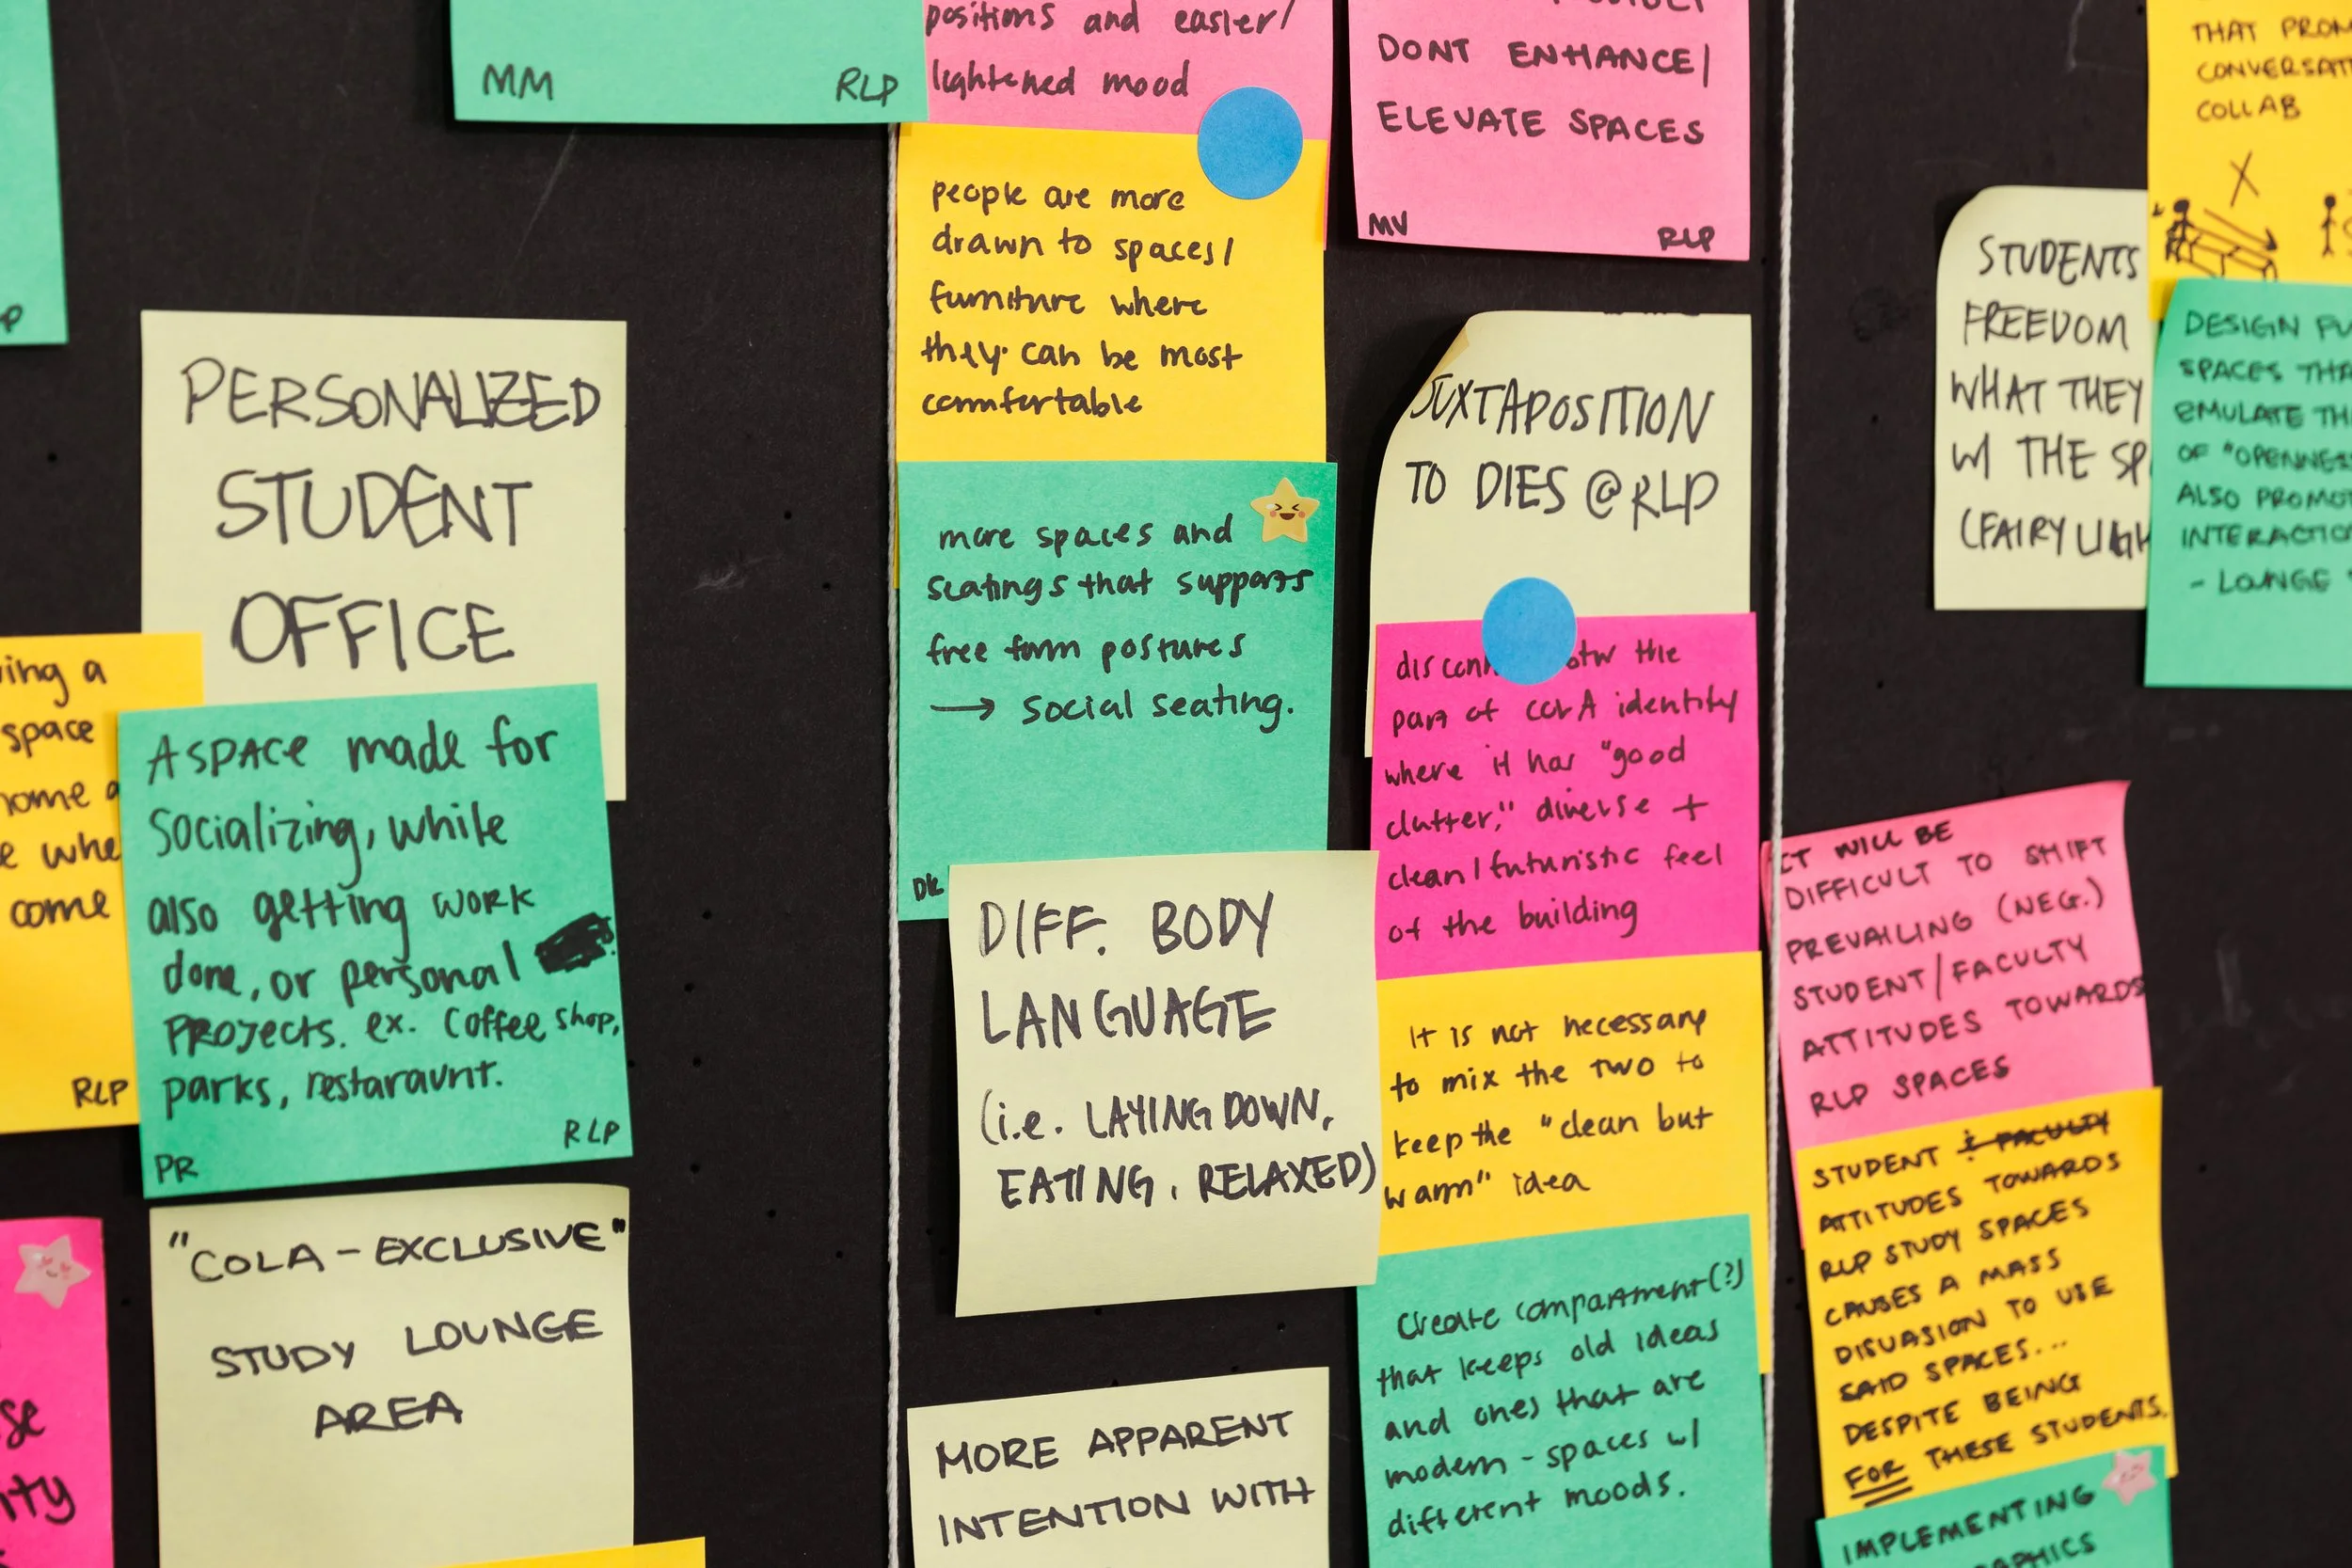 MM
RLP
PERSONALIZED
STUDENT
OFFICE
ing a
space
home a
e whe
come
RLP
A SPACE made for
socializing, while
also getting work
done, or personal
PROJECTS. ex. Coffee shop,
parks, restaraunt.
RLP
PR
"COLA-EXCLUSIVE"
STUDY LOUNGE
AREA
positions and easier/
lightened mood
people are more
drawn to spaces/
furniture where
they can be most
comfortable
more spaces and
seatings that supports
free form postures
→ social seating.
DK
DIFF. BODY
LANGUAGE
(i.e. LAYING DOWN,
EATING, RELAXED)
MORE APPARENT
INTENTION WITH
DONT ENHANCE/
ELEVATE SPACES
MV
RLP
JUXTAPOSITION
TO DIES @ RLP
btw the
part of COLA identity
where it has "good
clutter," diverse +
clean/futuristic feel
of the building
It is not necessary
to mix the two to
keep the "clean but
warm" idea
Create compartment(?)
that keeps old ideas
and ones that are
modern - spaces w/
different moods.
THAT PROM
CONVERSATI
COLLAB
STUDENTS
FREEDOM
WHAT THEY
W/ THE SP
(FAIRY LIGH
DESIGN FU
SPACES THA
EMULATE TH
OF "OPENNESS
ALSO PROMOT
INTERACTIO
- LOUNGE
IT WILL BE
DIFFICULT TO SHIFT
PREVAILING (NEG.)
STUDENT/FACULTY
ATTITUDES TOWARDS
RLP SPACES
STUDENT & FACULTY
ATTITUDES TOWARDS
RLP STUDY SPACES
CAUSES A MASS
DISUASION TO USE
SAID SPACES...
DESPITE BEING
FOR THESE STUDENTS.
IMPLEMENTING